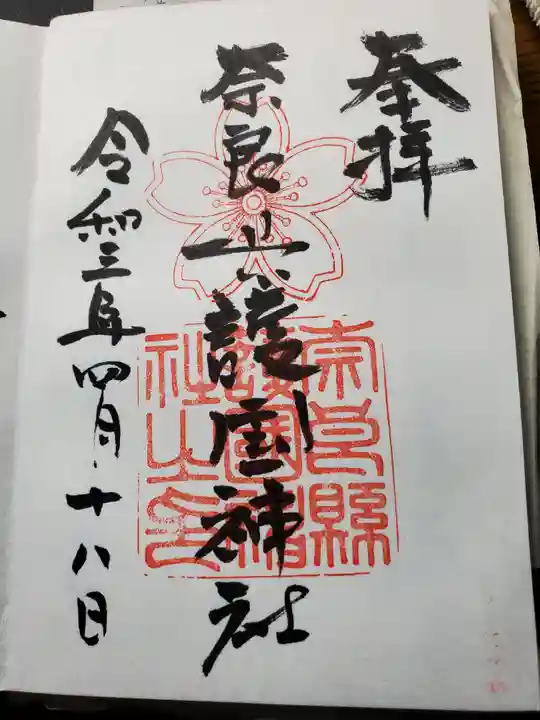 奉拝
奈良县護国神社
令和三年四月十八日
奈良縣
護國神
社之印